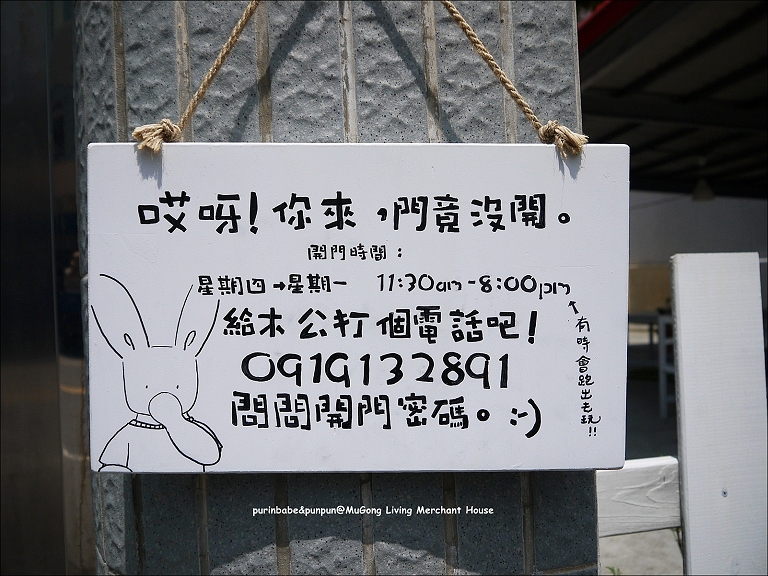 哎呀!你來,門竟沒開。
開門時間:
星期四→星期一 11:30am-8:00pm
給木公打個電話吧!
0919132891
問問開門密碼。:-)
有時會跑出去玩!!
purinbabe&punpun@MuGong Living Merchant House